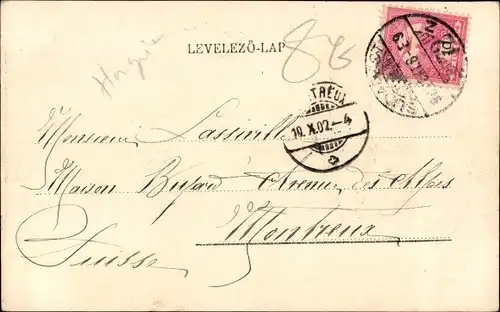 LEVELEZŐ-LAP
Hongrie
TREUX
10.X.02.-4
Monsieur Lassivill
Maison Bufard Avenue des Alpes
Montreux
Suisse